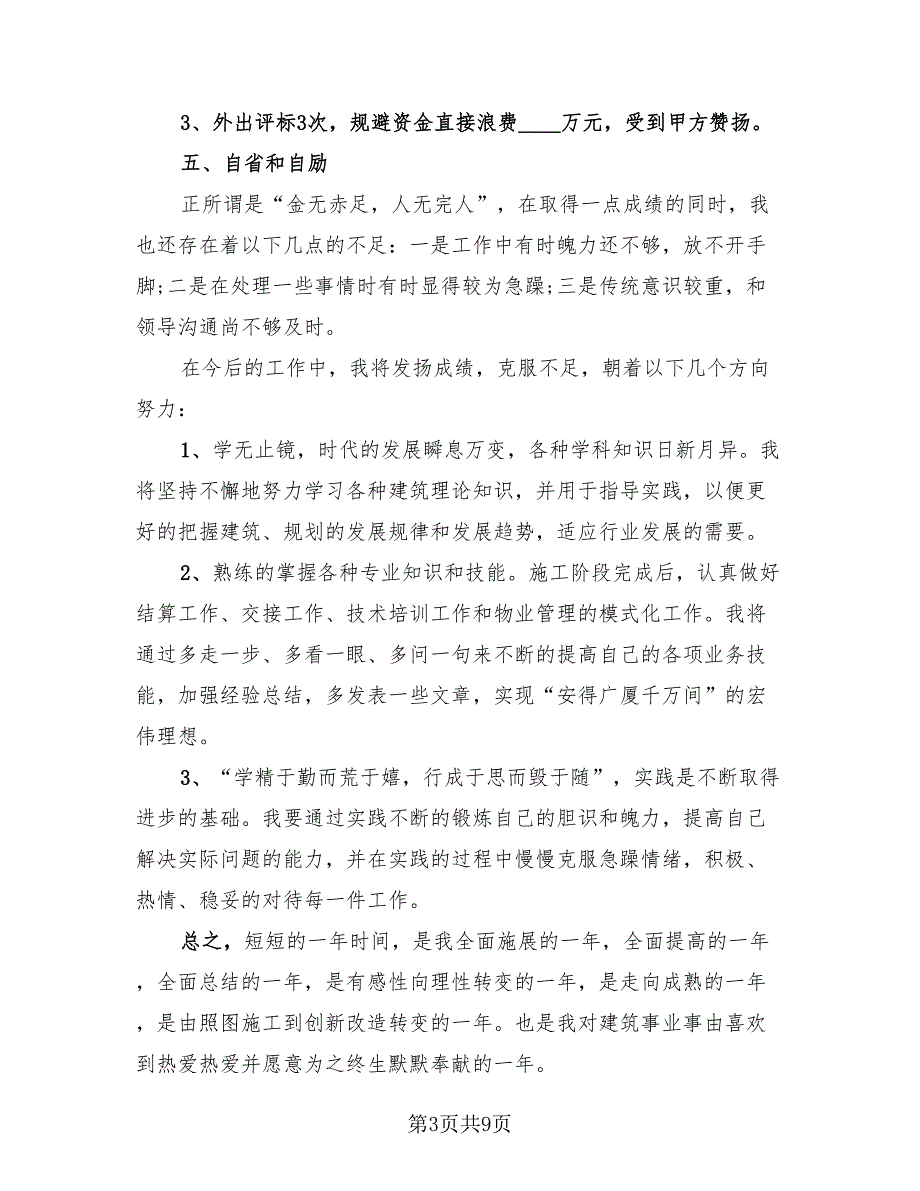 3、外出评标3次，规避资金直接浪费____万元，受到甲方赞扬。
五、自省和自励
正所谓是“金无赤足，人无完人”，在取得一点成绩的同时，我
也还存在着以下几点的不足：一是工作中有时魄力还不够，放不开手
脚;二是在处理一些事情时有时显得较为急躁;三是传统意识较重，和
领导沟通尚不够及时。
在今后的工作中，我将发扬成绩，克服不足，朝着以下几个方向
努力：
1、学无止镜，时代的发展瞬息万变，各种学科知识日新月异。我
将坚持不懈地努力学习各种建筑理论知识，并用于指导实践，以便更
好的把握建筑、规划的发展规律和发展趋势，适应行业发展的需要。
2、熟练的掌握各种专业知识和技能。施工阶段完成后，认真做好
结算工作、交接工作、技术培训工作和物业管理的模式化工作。我将
通过多走一步、多看一眼、多问一句来不断的提高自己的各项业务技
能，加强经验总结，多发表一些文章，实现“安得广厦千万间”的宏
伟理想。
3、“学精于勤而荒于嬉，行成于思而毁于随”，实践是不断取得
进步的基础。我要通过实践不断的锻炼自己的胆识和魄力，提高自己
解决实际问题的能力，并在实践的过程中慢慢克服急躁情绪，积极、
热情、稳妥的对待每一件工作。
总之，短短的一年时间，是我全面施展的一年，全面提高的一年
，全面总结的一年，是有感性向理性转变的一年，是走向成熟的一年
，是由照图施工到创新改造转变的一年。也是我对建筑事业事由喜欢
到热爱热爱并愿意为之终生默默奉献的一年。
第3页共9页